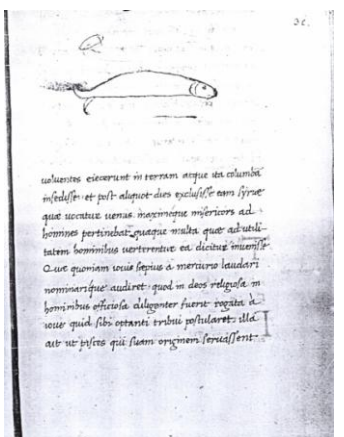 3c.
uoluentes eiecerunt in terram atque ita columba
insedisse et post aliquot dies exclusisse eam syriae
quae uocatur uenus maximeque misericors ad
homines pertinebat quaque multa quae ad utili-
tatem hominibus uerterentur ea dicitur inuenisse
Quae quoniam iouis saepius a mercurio laudari
nominarique audiret quod in deos religiosa in
hominibus officiosa diligenter fuerit rogata à
ioue quid sibi optanti tribui postularet illa
ait ut pisces qui suam originem seruassent.